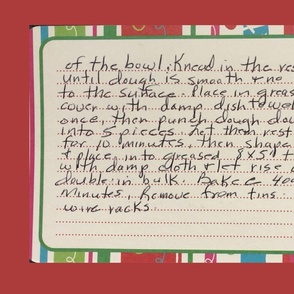 of the bowl. Knead in the res
until dough is smooth + no
to the surface. Place in greas
cover with damp dish towel
once, then punch dough dow
into 5 pieces. Let them rest
for 10 minutes, then shape
+ place into greased 8x5
with damp cloth + let rise
double in bulk. Bake @ 400
minutes, Remove from tins
wire racks